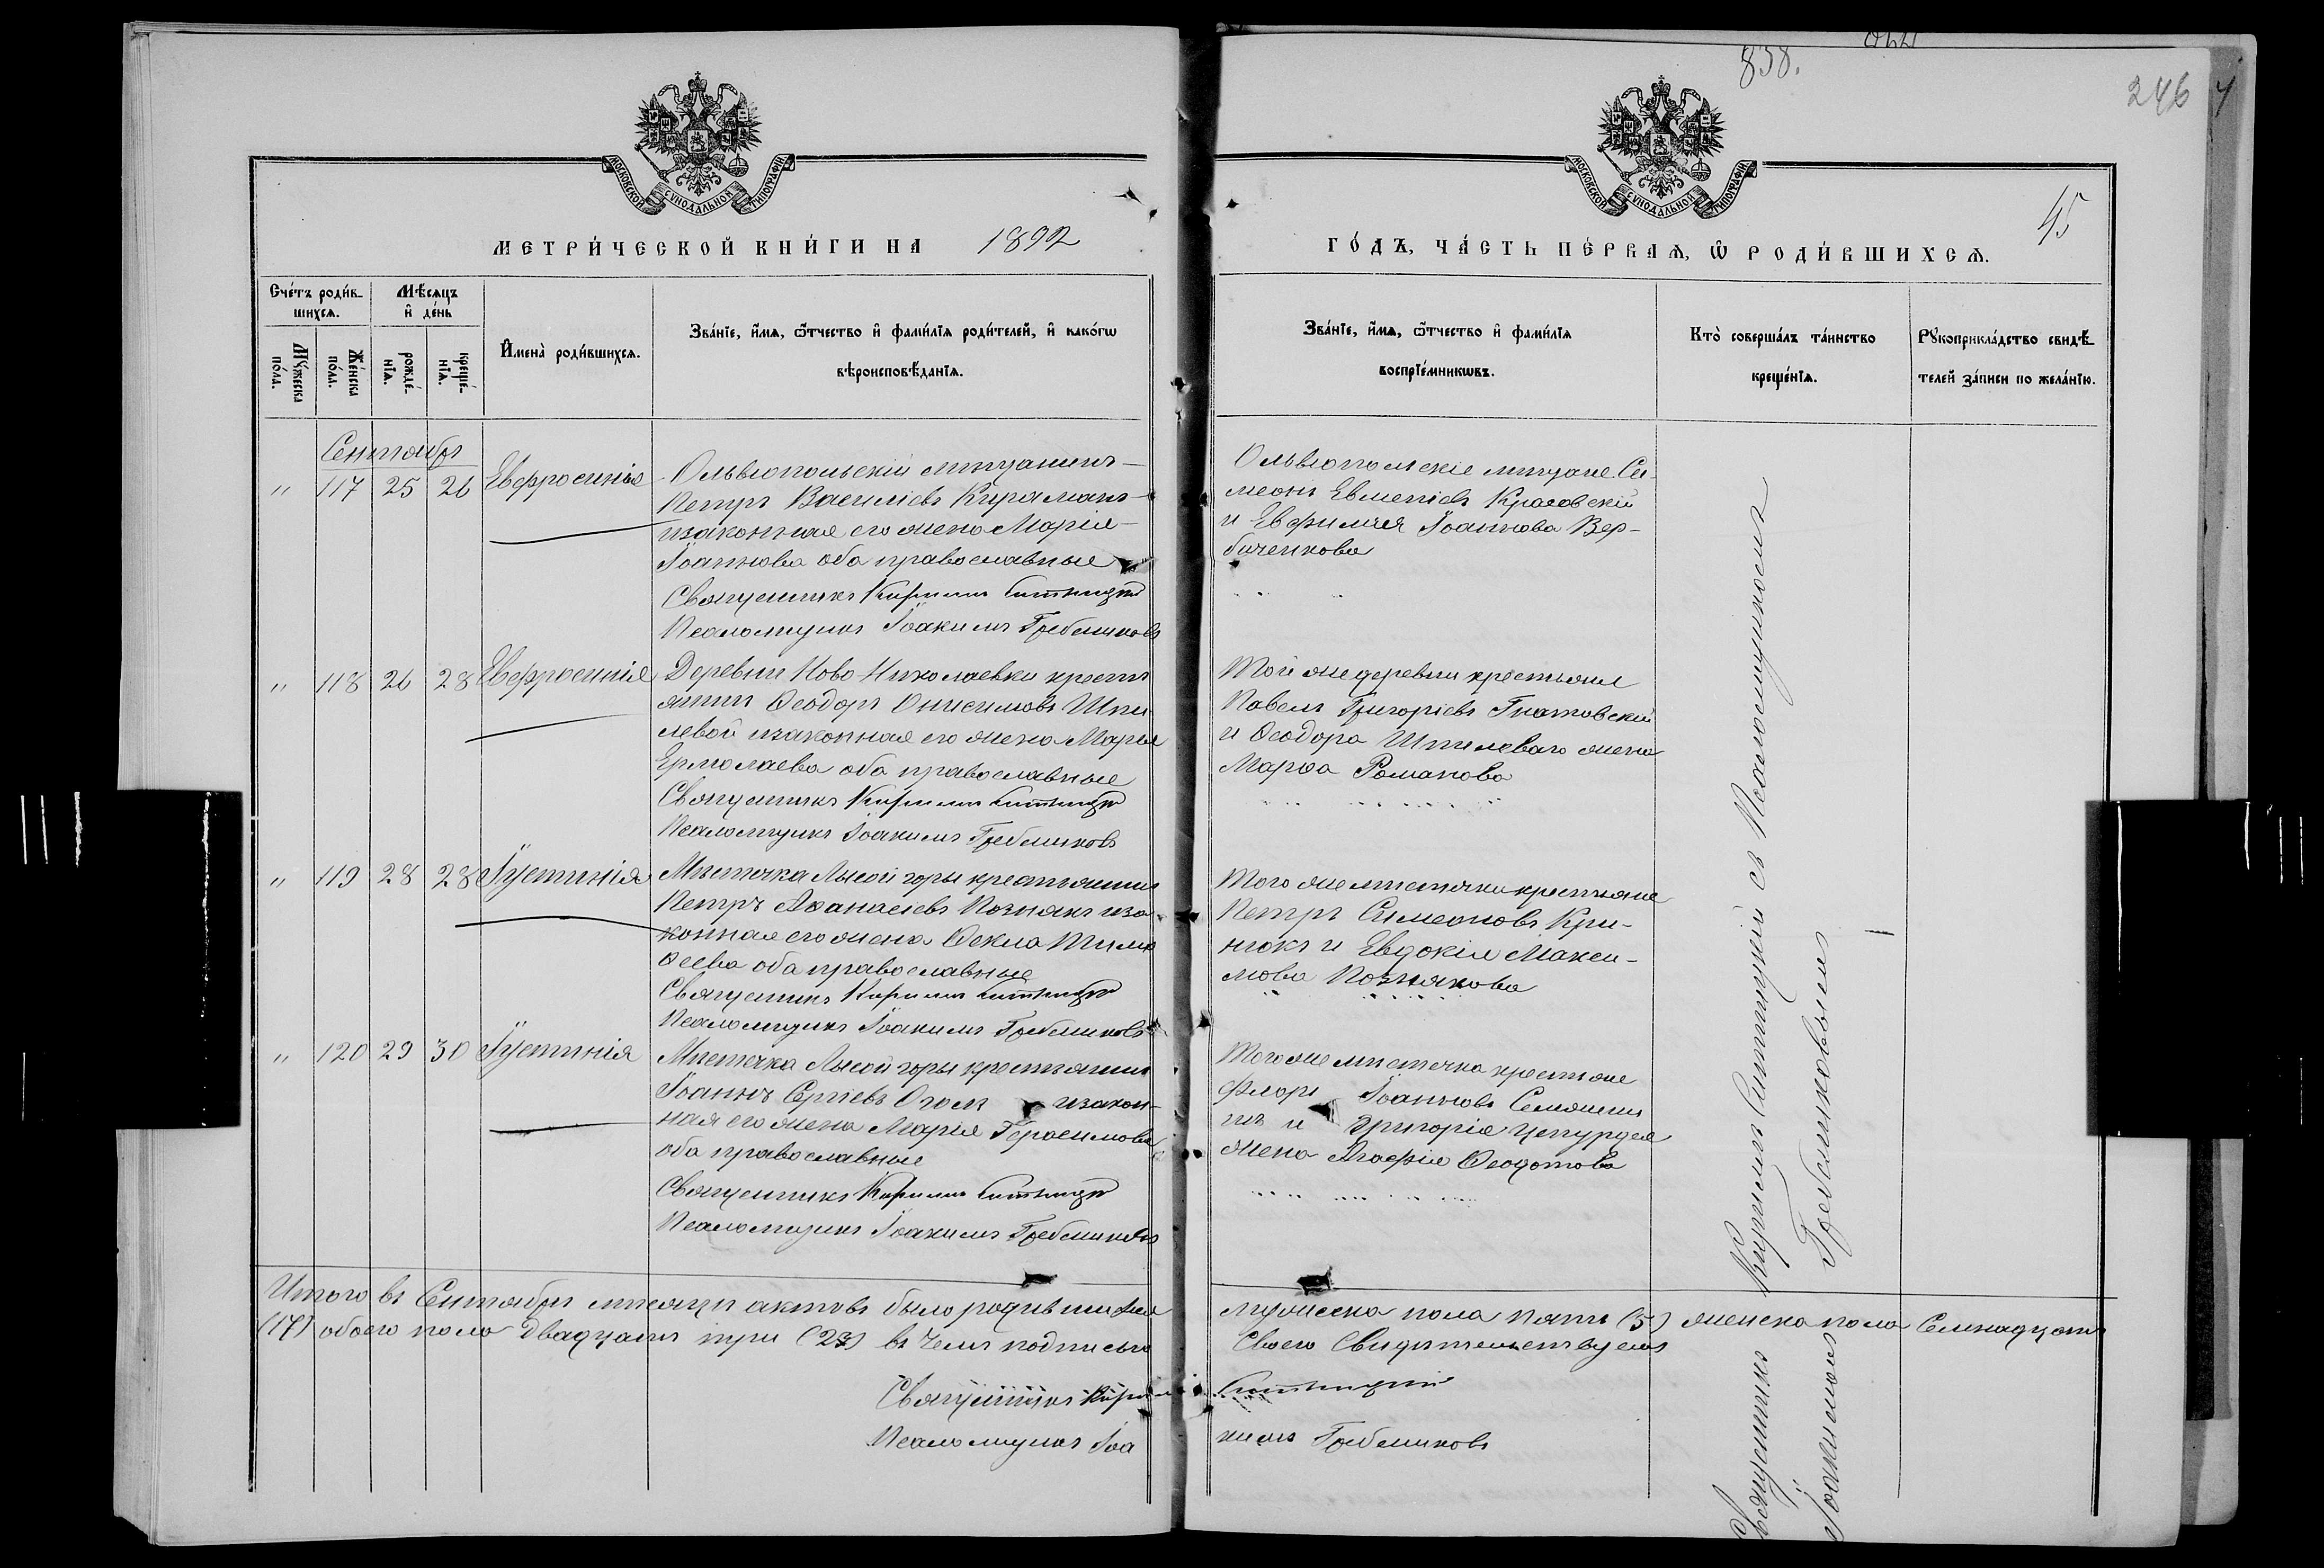 838.
246
45
МОСКОВСКОЙ СѴНОДАЛЬНОЙ ТИПОГРАФІИ
МОСКОВСКОЙ СѴНОДАЛЬНОЙ ТИПОГРАФІИ
МЕТРИ́ЧЕСКОЙ КНИ́ГИ НА 1892
ГО́ДЪ, ЧА́СТЬ ПЕ́РВАѦ, Ѽ РОДИ́ВШИХСѦ.
Сче́тъ роди́в-
шихсѧ.
Мѣ́сѧцъ
и҆ де́нь
Мꙋ́жеска
по́ла.
Же́нска
по́ла.
рожде́-
нїѧ.
креще́-
нїѧ.
И҆мена̀ роди́вшихсѧ.
Зва́нїе, и҆́мѧ, ѻ҆́тчество и҆ фами́лїѧ роди́телей, и҆ како́гѡ
вѣроисповѣ́данїѧ.
Зва́нїе, и҆́мѧ, ѻ҆́тчество и҆ фами́лїѧ
воспрїе́мникѡвъ.
Кто̀ соверша́лъ та́инство
креще́нїѧ.
Рꙋкоприкла́дство свидѣ́-
телей за́писи по жела́нїю.
Сентябрь
" 117 25 26 Евфросинія
Ольвіопольскій мѣщанинъ
Петръ Василіевъ Кираманъ
изаконная его жена Марія
Іоаннова оба православные
Священникъ Кириллъ Ситницкій
Псаломщикъ Іоакимъ Гребениковъ
Ольвіопольскіе мѣщане Си-
меонъ Евменіевъ Красовскій
и Евфимія Іоаннова Вер-
биченкова
" 118 26 28 Евфросинія
Деревни Ново-Николаевки кресть
янинъ Ѳеодоръ Онисимовъ Шпи
левой изаконная его жена Марья
Ермолаева оба православные
Священникъ Кириллъ Ситницкій
Псаломщикъ Іоакимъ Гребениковъ
Той же деревни крестьяне
Павелъ Григоріевъ Гнатовскій
и Ѳеодора Шпилеваго жена
Марѳа Романова
" 119 28 28 Іустинія
Мѣстечка Лысой горы крестьянинъ
Петръ Аѳанасіевъ Познякъ иза
конная его жена Ѳекла Тимо
ѳеева оба православные
Священникъ Кириллъ Ситницкій
Псаломщикъ Іоакимъ Гребениковъ
Того же мѣстечка крестьяне
Петръ Симеоновъ Кри-
нюкъ и Евдокія Макси-
мова Познякова
" 120 29 30 Іустинія
Мѣстечка Лысой горы крестьянинъ
Іоаннъ Сергіевъ изакон-
ная его жена Марія Герасимова
оба православные
Священникъ Кириллъ Ситницкій
Псаломщикъ Іоакимъ Гребениковъ
Того же мѣстечка крестьяне
Флоръ Іоанновъ
и Григорія
жена Агафія Ѳеодотова
Священникъ Кириллъ Ситницкій съ Псаломщикомъ
Іоакимомъ Гребениковымъ
Итого въ Сентябрѣ мѣсяцѣ актовъ было родившихся мужеска пола пять (5) женска пола Семнадцать
(17) обоего пола двадцать три (23) въ чемъ подписью Своею Свидѣтельствуемъ
Священникъ Кириллъ Ситницкій
Псаломщикъ Іоакимъ Гребениковъ